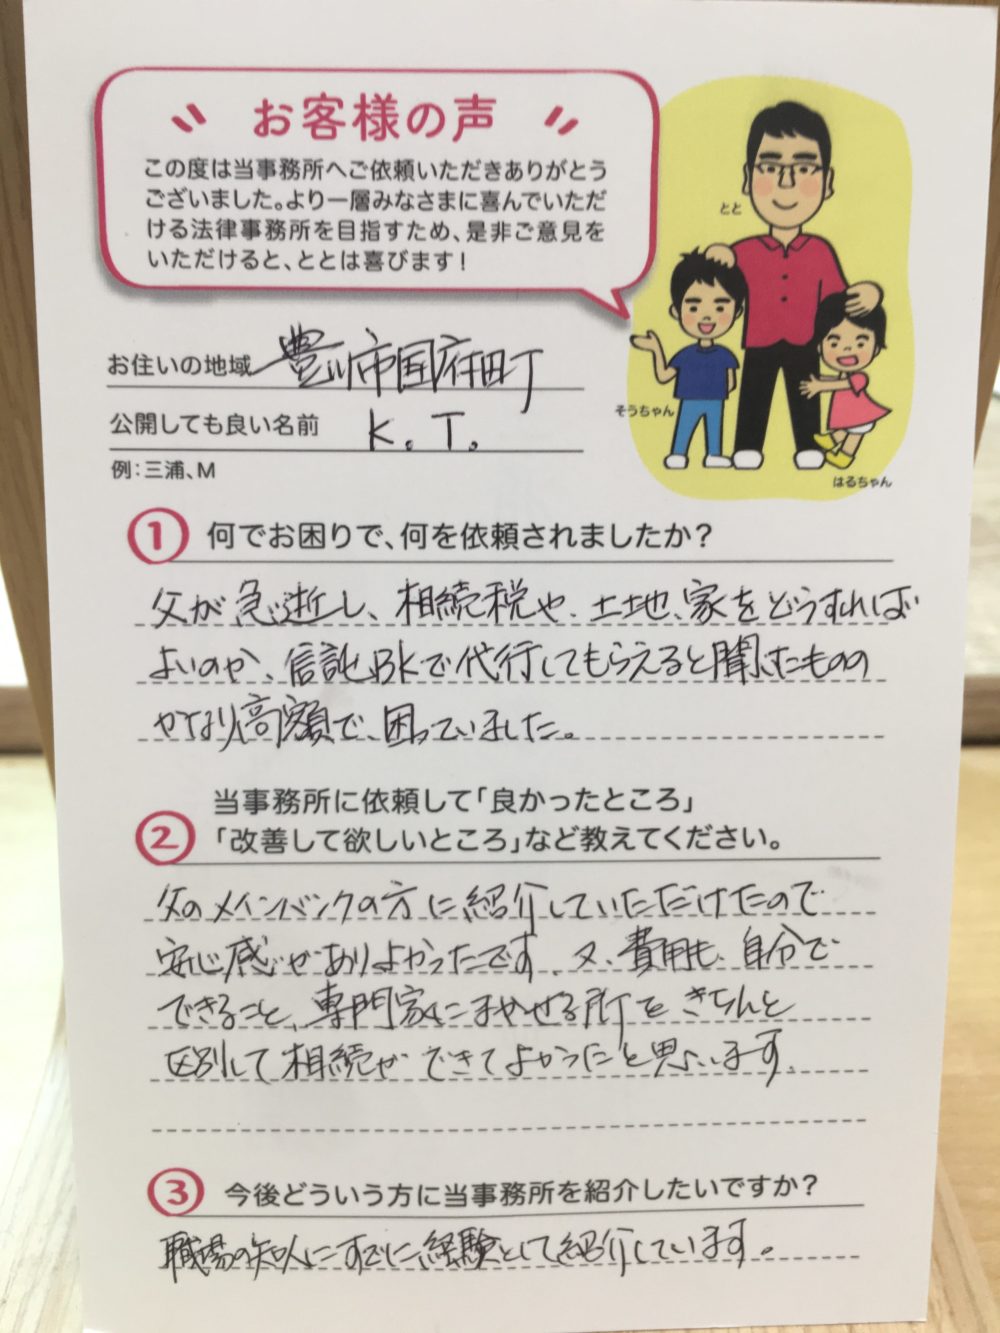 お客様の声
この度は当事務所へご依頼いただきありがとう
ございました。より一層みなさまに喜んでいただ
ける法律事務所を目指すため、是非ご意見を
いただけると、ととは喜びます！
とと
そうちゃん
はるちゃん
お住いの地域 豊川市国府町
公開しても良い名前 K.T.
例：三浦、M
① 何でお困りで、何を依頼されましたか？
父が急逝し、相続税や、土地、家をどうすれば
よいのか、信託BKで代行してもらえると聞いたものの
かなり高額で、困っていました。
② 当事務所に依頼して「良かったところ」
「改善して欲しいところ」など教えてください。
父のメインバンクの方に紹介していただけたので
安心感がありよかったです。又、費用も、自分で
できること、専門家にまかせる所をきちんと
区別して相続ができてよかったと思います。
③ 今後どういう方に当事務所を紹介したいですか？
職場の知人にすでに経験として紹介しています。